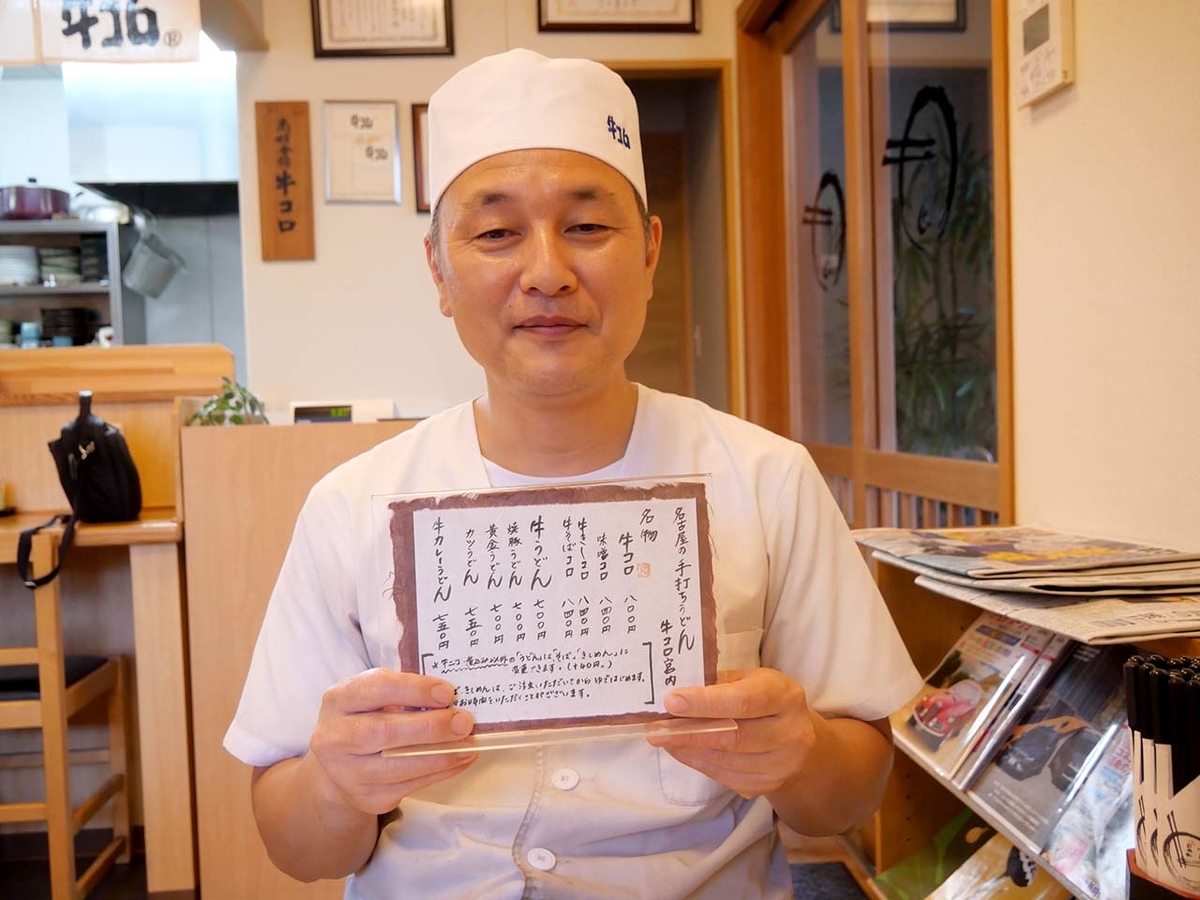 牛コロ®
牛コロ
牛コロ
牛コロ
牛コロ
名古屋の手打ちうどん
牛コロ宮内
名物
牛コロ 八〇〇円
味噌コロ 八四〇円
牛きしコロ 八四〇円
牛そばコロ 八四〇円
牛うどん 七〇〇円
焼豚うどん 七〇〇円
黄金うどん 七〇〇円
カツうどん 七五〇円
牛カレーうどん 七五〇円
の「うどん」は、「そば」「きしめん」に
変更できます。(+40円。)
ば、きしめんは、ご注文いただいてから ゆではじめます。
お時間をいただくことがございます。